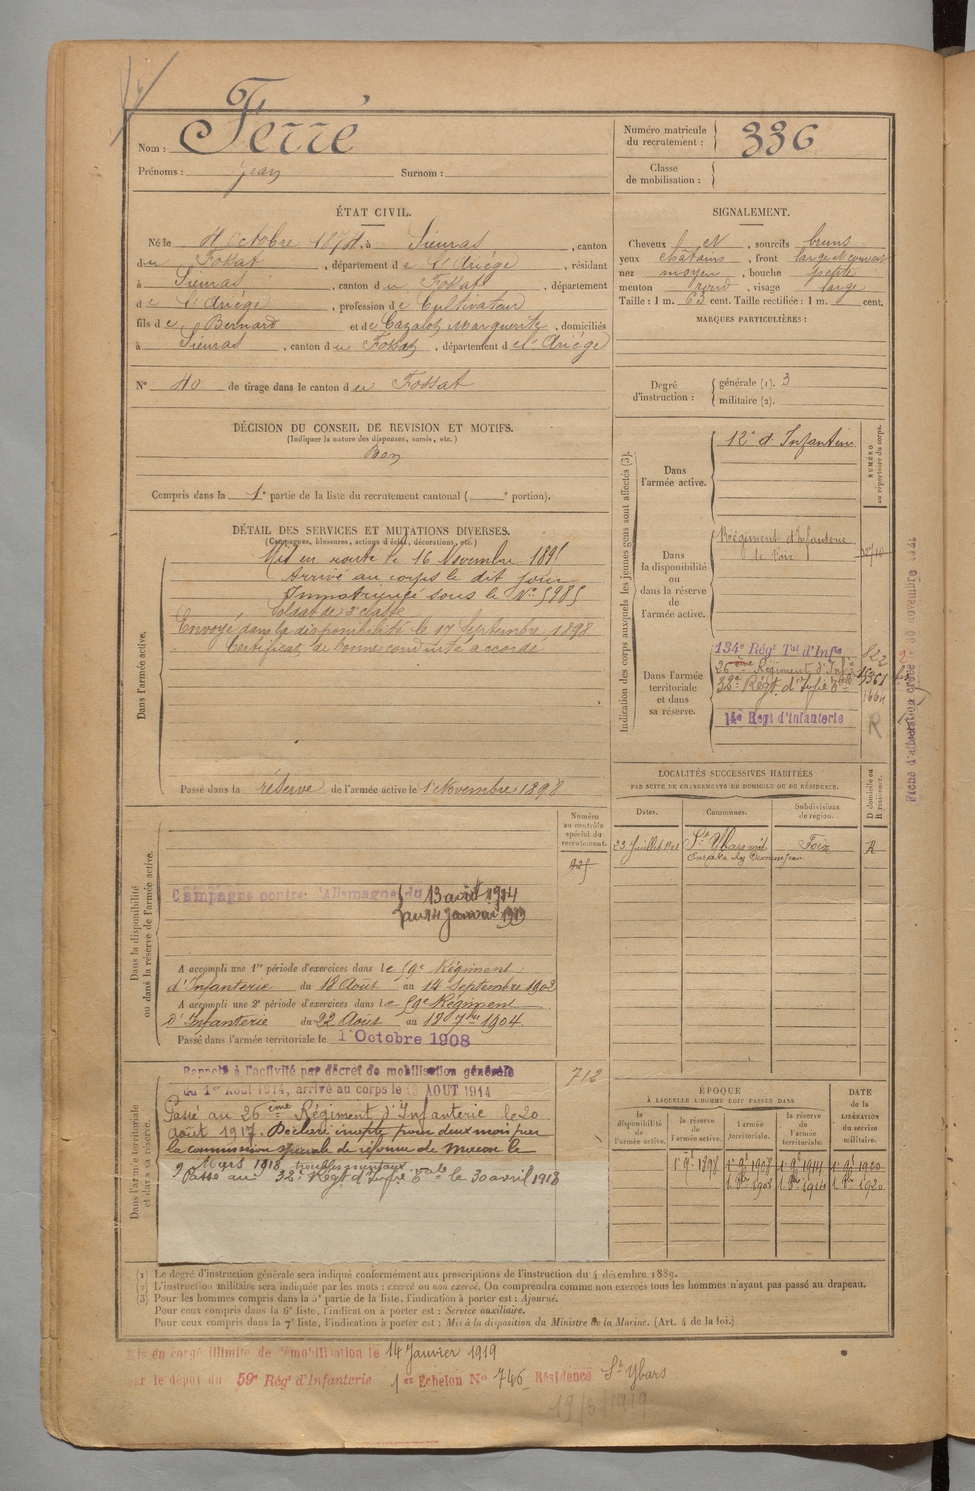 Nom : Ferré
Prénoms : Jean Surnom :
Numéro matricule du recrutement : 336
Classe de mobilisation :
ÉTAT CIVIL.
Né le 4 Octobre 1874, à Sieuras, canton
du Fossat, département de l'Ariége, résidant
à Sieuras, canton du Fossat, département
de l'Ariége, profession de Cultivateur
fils de Bernard et de Cazalot Marguerite, domiciliés
à Sieuras, canton du Fossat, département de l'Ariége
N° 40 de tirage dans le canton du Fossat
SIGNALEMENT.
Cheveux et, sourcils bruns
yeux chatains, front large et couvert
nez moyen, bouche petite
menton rond, visage large
Taille : 1 m. 63 cent. Taille rectifiée : 1 m. cent.
MARQUES PARTICULIÈRES :
Degré d'instruction : générale (1). 3
militaire (2).
DÉCISION DU CONSEIL DE REVISION ET MOTIFS.
(Indiquer la nature des dispenses, sursis, etc.)
Bon
Compris dans la 1e partie de la liste du recrutement cantonal ( e portion).
DÉTAIL DES SERVICES ET MUTATIONS DIVERSES.
(Campagnes, blessures, actions d'éclat, décorations, etc.)
Dans l'armée active.
Mis en route le 16 Novembre 1895
Arrivé au corps le dit jour
Immatriculé sous le N° 5985
Soldat de 2e classe
Envoyé dans la disponibilité le 17 Septembre 1898
Certificat de bonne conduite accordé
Passé dans la réserve de l'armée active le 1 Novembre 1898
Indication des corps auxquels les jeunes gens sont affectés (3).
NUMÉRO au répertoire du corps.
Dans l'armée active.
12e d'Infanterie
Dans la disponibilité ou dans la réserve de l'armée active.
Régiment d'Infanterie
de Foix
Dans l'armée territoriale et dans sa réserve.
134e Régt Tal d'Infie 822
26ème Régiment d'Infie 15361 bis
32e Régt d'Infie 1664
14e Regt d'Infanterie R
Fiche d'allocation créée 30 novembre 1921
LOCALITÉS SUCCESSIVES HABITÉES
PAR SUITE DE CHANGEMENTS DE DOMICILE OU DE RÉSIDENCE.
Dates. Communes. Subdivisions de région. D domicile ou R résidence.
23 Juillet 1901 St Ybars Foix R
Dans la disponibilité ou dans la réserve de l'armée active.
Numéro au contrôle spécial du recrutement.
Campagne contre l'Allemagne du 13 août 1914
au 14 Janvier 1919
A accompli une 1re période d'exercices dans le 59e Régiment
d'Infanterie du 18 Août au 14 Septembre 1902
A accompli une 2e période d'exercices dans le 59e Régiment
d'Infanterie du 22 Août au 18 7bre 1904.
Passé dans l'armée territoriale le 1 Octobre 1908
Dans l'armée territoriale et dans sa réserve.
712
Rappelé à l'activité par décret de mobilisation générale
du 1er Août 1914, arrivé au corps le 13 AOUT 1914
Passé au 26ème Régiment d'Infanterie le 20
août 1917. Déclaré inapte pour deux mois par
la commission spéciale de réforme de Macon le
9 Mars 1918 troubles mentaux
Passé au 32e Régt d'Infie le 30 avril 1918
ÉPOQUE
À LAQUELLE L'HOMME DOIT PASSER DANS
la disponibilité de l'armée active. la réserve de l'armée active. l'armée territoriale. la réserve de l'armée territoriale.
DATE de la LIBÉRATION du service militaire.
1er 9bre 1898 1er 9bre 1908 1er 9bre 1914 1er 9bre 1920
1 8bre 1908 1 8bre 1914 1 8bre 1920
(1) Le degré d'instruction générale sera indiqué conformément aux prescriptions de l'instruction du 4 décembre 1889.
(2) L'instruction militaire sera indiquée par les mots : exercé ou non exercé. On comprendra comme non exercés tous les hommes n'ayant pas passé au drapeau.
(3) Pour les hommes compris dans la 5e partie de la liste, l'indication à porter est : Ajourné.
Pour ceux compris dans la 6e liste, l'indication à porter est : Service auxiliaire.
Pour ceux compris dans la 7e liste, l'indication à porter est : Mis à la disposition du Ministre de la Marine. (Art. 4 de la loi.)
Mis en congé illimité de démobilisation le 14 Janvier 1919
par le dépôt du 59e Régt d'Infanterie 1er Echelon N° 746 Résidence St Ybars
19/3/1919